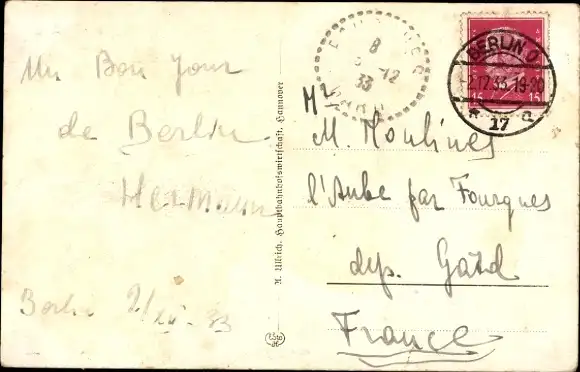 Un Bon Jour
de Berlin
Hermann
Berlin 2/XII 33
A. Ullrich, Hauptbahnhofswirtschaft, Hannover
8
12
33
GARD
BERLIN O
2.12.33.19-20
17
15 15
Mr
M. Moulines
l'Aube par Fourques
dep. Gard
France